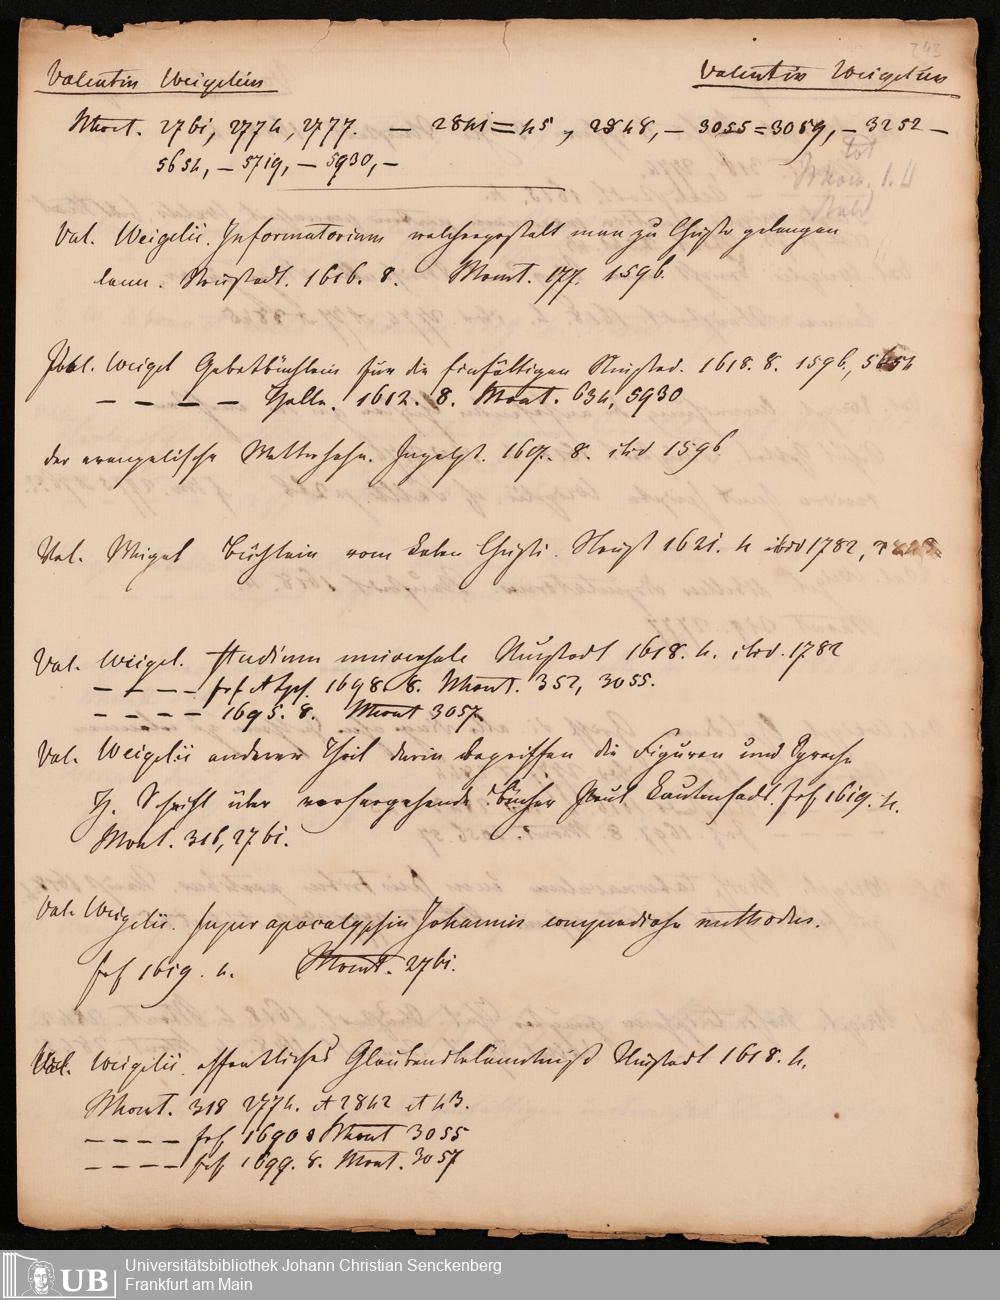 243
Valentin Weigelius Valentin Weigelius
Mont. 2761, 2774, 2777. — 2841=45, 2848, — 3055=3059, — 3252 —
5654, — 5719, — 5930, —
Val. Weigelii. Informatorium welchergestalt man zu Christo gelangen
kann. Neustadt. 1616. 8. Mont. 177. 1596.
Val. Weigel Gebetbüchlein für die Einfältigen Neustad. 1618. 8. 1596, 5654
— — — — Halle. 1612. 8. Mont. 634, 5930
der evangelische Wetterhahn. Ingolst. 1607. 8. ibid 1596
Val. Weigel Büchlein vom Leben Christi. Neust 1621. 4 ibid 1782,
Val. Weigel. Studium universale Neustadt 1618. 4. ibid. 1782
— — — — frf & Lpz. 1698. 8. Mont. 352, 3055.
— — — — 1695. 8. Mont 3057
Val. Weigelii anderer Theil darin begriffen die Figuren und Sprache
H. Schrift über vorhergehende Bücher Paul Lautensacks. frf 1619. 4.
Mont. 316, 2761.
Val. Weigelii. super apocalypsin Johannis compendiosa methodus.
frf 1619. 4. Mont. 2761.
Val. Weigelii. offentliches Glaubensbekänntniß Neustadt 1618. 4.
Mont. 318 2774. et 2842 et 43.
— — — — frf 1690 8 Mont 3055
— — — — frf 1699. 8. Mont. 3057
UB Universitätsbibliothek Johann Christian Senckenberg
Frankfurt am Main